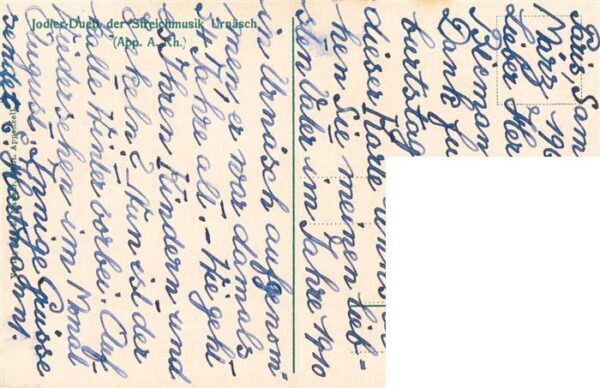 Jodler-Duett der Streichmusik Urnäsch
(App. A. Rh.)
Paris, Sam
März
Lieber Her
Dank fu
burtstag
dieser Karte
hen Sie meinen lieb-
sten Vater im Jahre 1910
in Urnäsch aufgenom-
men, er war damals
Jahre alt. - Wie geht
es Ihren Kindern und
Enkeln? Nun ist der
kalte Winter vorbei. Auf
Wiedersehen im Monat
August. Innige Grüsse
sendet